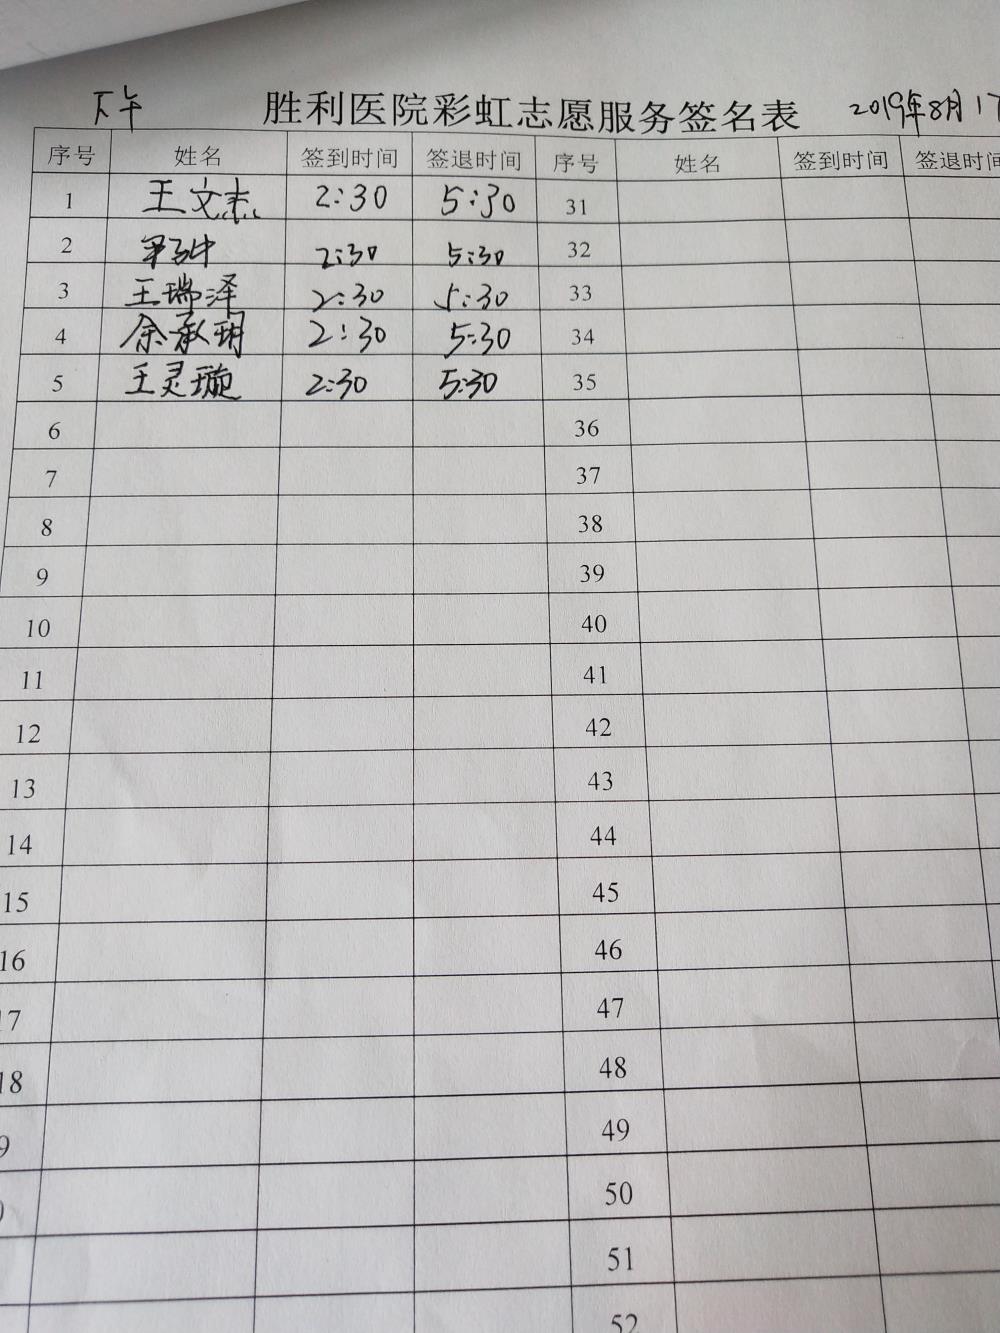 下午 胜利医院彩虹志愿服务签名表 2019年8月17
序号 姓名 签到时间 签退时间 序号 姓名 签到时间 签退时间
1 王文志 2:30 5:30 31
2 2:30 5:30 32
3 王瑞泽 2:30 5:30 33
4 余承玥 2:30 5:30 34
5 王灵璇 2:30 5:30 35
6 36
7 37
8 38
9 39
10 40
11 41
12 42
13 43
14 44
15 45
16 46
17 47
18 48
9 49
50
51
52